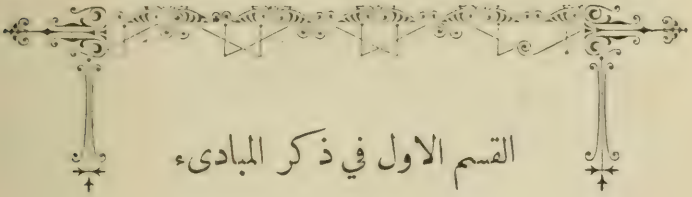 القسم الاول في ذكر المبادىء